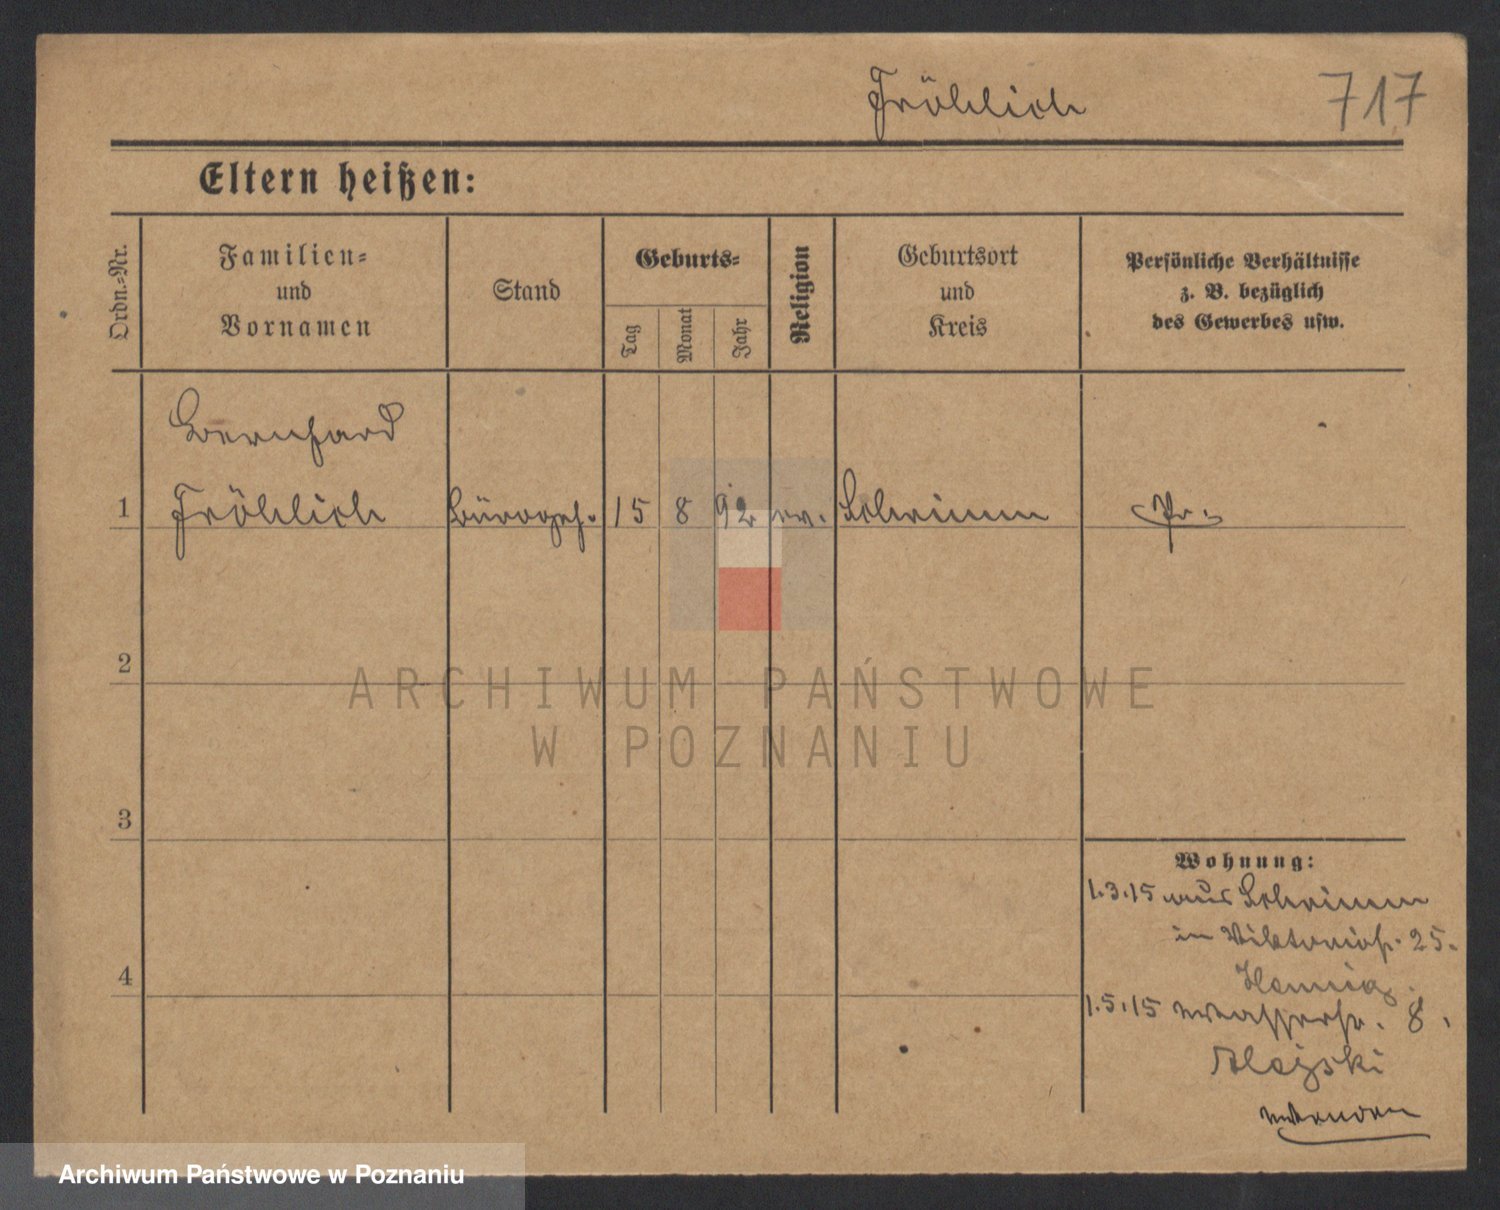 Fröhlich 717
Eltern heißen:
Ordn.-Nr.
Familien-
und
Vornamen
Stand
Geburts-
Tag
Monat
Jahr
Religion
Geburtsort
und
Kreis
Persönliche Verhältnisse
z. B. bezüglich
des Gewerbes usw.
Bernhard
1 Fröhlich Bürogeh. 15 8 92 ev. Schrimm Pr.
2
3
4
Wohnung:
1.3.15 aus Schrimm
in Viktoriastr. 25.
Hennig
1.5.15 Wasserstr. 8.
ARCHIWUM PAŃSTWOWE
W POZNANIU
Archiwum Państwowe w Poznaniu